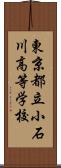 東京都立小石
川高等学校